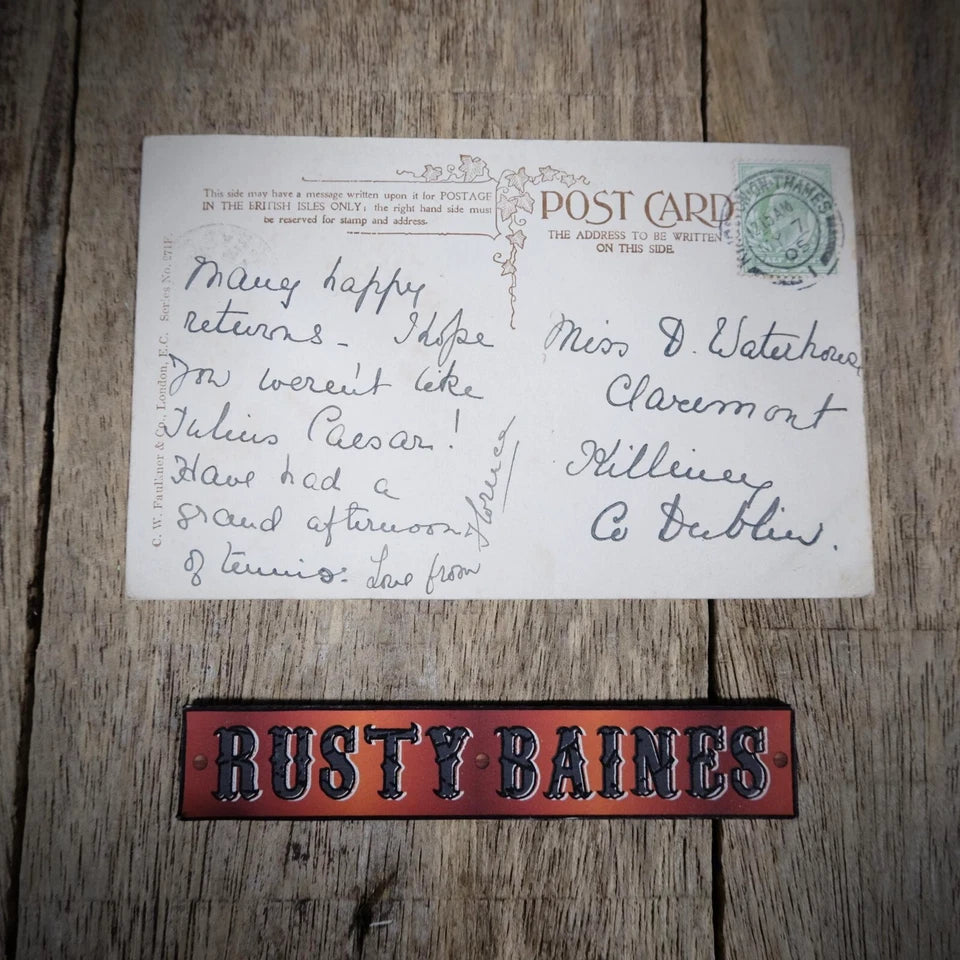 This side may have a message written upon it for POSTAGE
IN THE BRITISH ISLES ONLY; the right hand side must
be reserved for stamp and address.
POST CARD
THE ADDRESS TO BE WRITTEN
ON THIS SIDE.
C. W. Faulkner & Co., London, E.C. Series No. 271F
Many happy
returns – I hope
You weren't like
Julius Caesar!
Have had a
grand afternoon
of tennis. Love from
Miss D. Waterhouse
Claremont
Killiney
Co Dublin.
THAMES
RUSTY BAINES